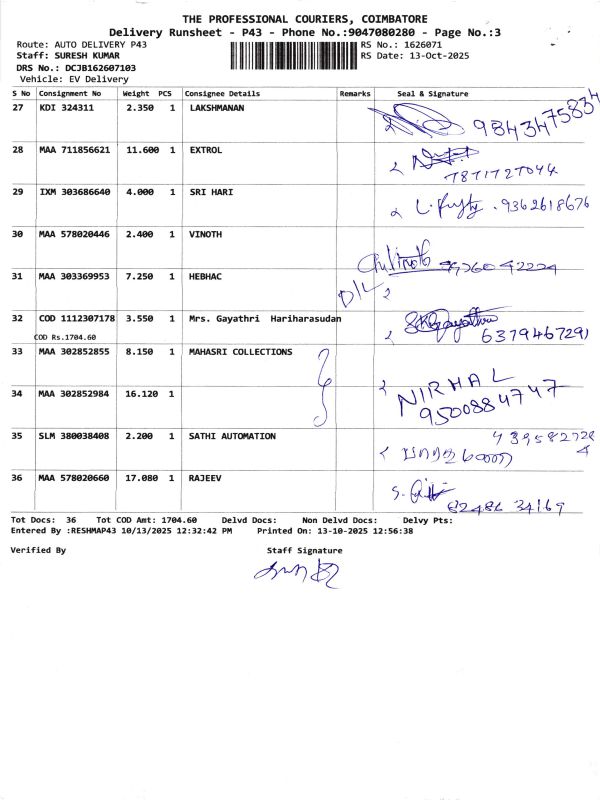 THE PROFESSIONAL COURIERS, COIMBATORE
Delivery Runsheet - P43 - Phone No.:9047080280 - Page No.:3
Route: AUTO DELIVERY P43 RS No.: 1626071
Staff: SURESH KUMAR RS Date: 13-Oct-2025
DRS No.: DCJB162607103
Vehicle: EV Delivery
S No Consignment No Weight PCS Consignee Details Remarks Seal & Signature
27 KDI 324311 2.350 1 LAKSHMANAN 9843475834
28 MAA 711856621 11.600 1 EXTROL 7871727044
29 IXM 303686640 4.000 1 SRI HARI 9362618676
30 MAA 578020446 2.400 1 VINOTH
31 MAA 303369953 7.250 1 HEBHAC D/L
32 COD 1112307178 3.550 1 Mrs. Gayathri Hariharasudan 6379467291
COD Rs.1704.60
33 MAA 302852855 8.150 1 MAHASRI COLLECTIONS
34 MAA 302852984 16.120 1 NIRMAL
9500884747
35 SLM 380038408 2.200 1 SATHI AUTOMATION
36 MAA 578020660 17.080 1 RAJEEV 82486 34169
Tot Docs: 36 Tot COD Amt: 1704.60 Delvd Docs: Non Delvd Docs: Delvy Pts:
Entered By :RESHMAP43 10/13/2025 12:32:42 PM Printed On: 13-10-2025 12:56:38
Verified By Staff Signature